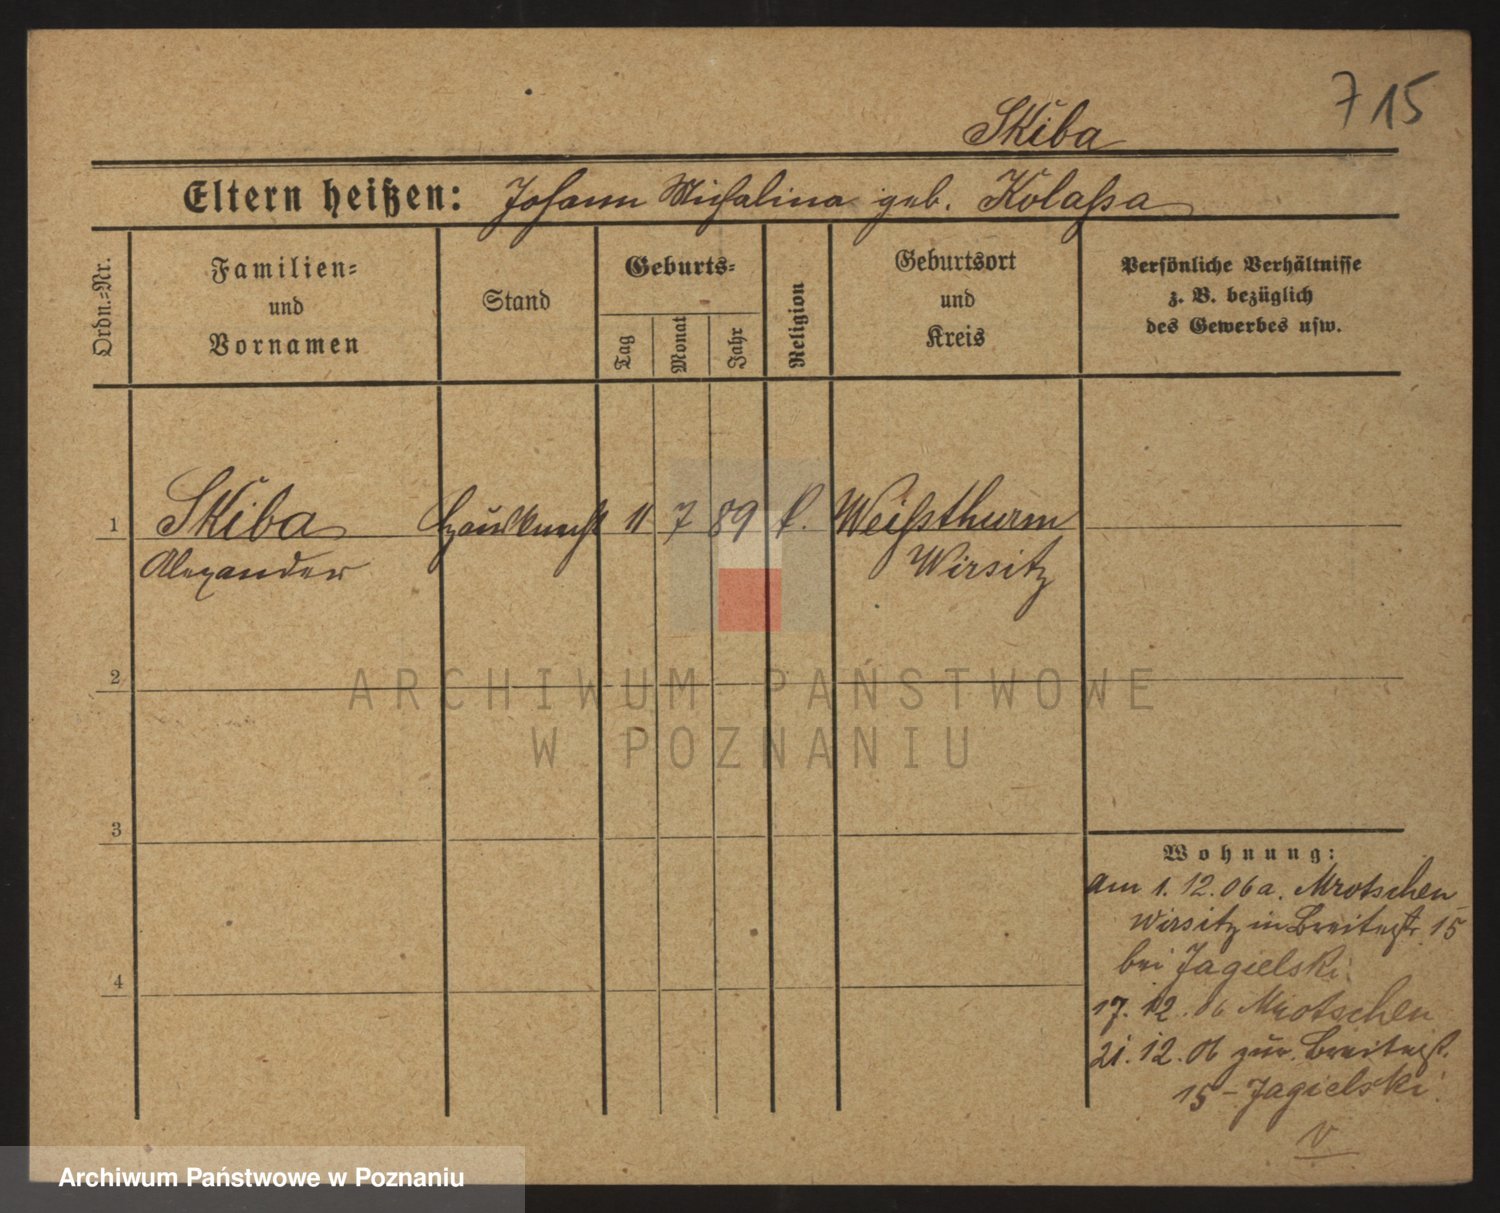 715
Skiba
Eltern heißen: Johann Michalina geb. Kolaßa
Ordn.=Nr.
Familien=
und
Vornamen
Stand
Geburts=
Tag
Monat
Jahr
Religion
Geburtsort
und
Kreis
Persönliche Verhältnisse
z. B. bezüglich
des Gewerbes usw.
1 Skiba Hausknecht 11 7 89 k. Weißsthurm
Alexander Wirsitz
2
ARCHIWUM PAŃSTWOWE
W POZNANIU
3
Wohnung:
am 1. 12. 06 a. Mrotschen
Wirsitz in Breitestr. 15
bei Jagielski.
4
17. 12. 06 Mrotschen
21. 12. 06 zur. Breitestr.
15 - Jagielski.
v
Archiwum Państwowe w Poznaniu